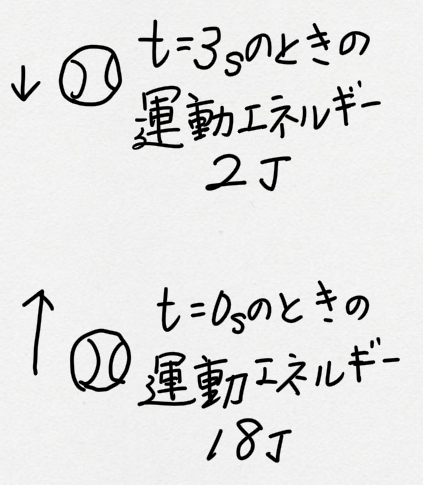 t=3sのときの
運動エネルギー
2J
t=0sのときの
運動エネルギー
18J